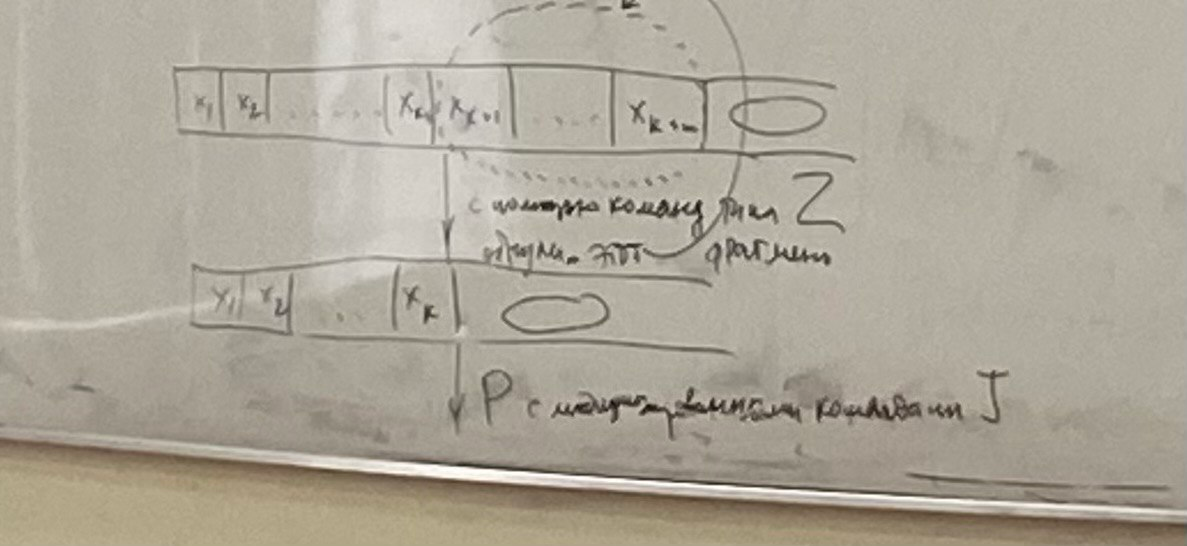 x₁ x₂ ...... xₖ xₖ₊₁ .... xₖ₊ₘ 0
с помощью команд типа Z
обнулим этот фрагмент
x₁ x₂ ... xₖ 0
P с модифицированными командами J